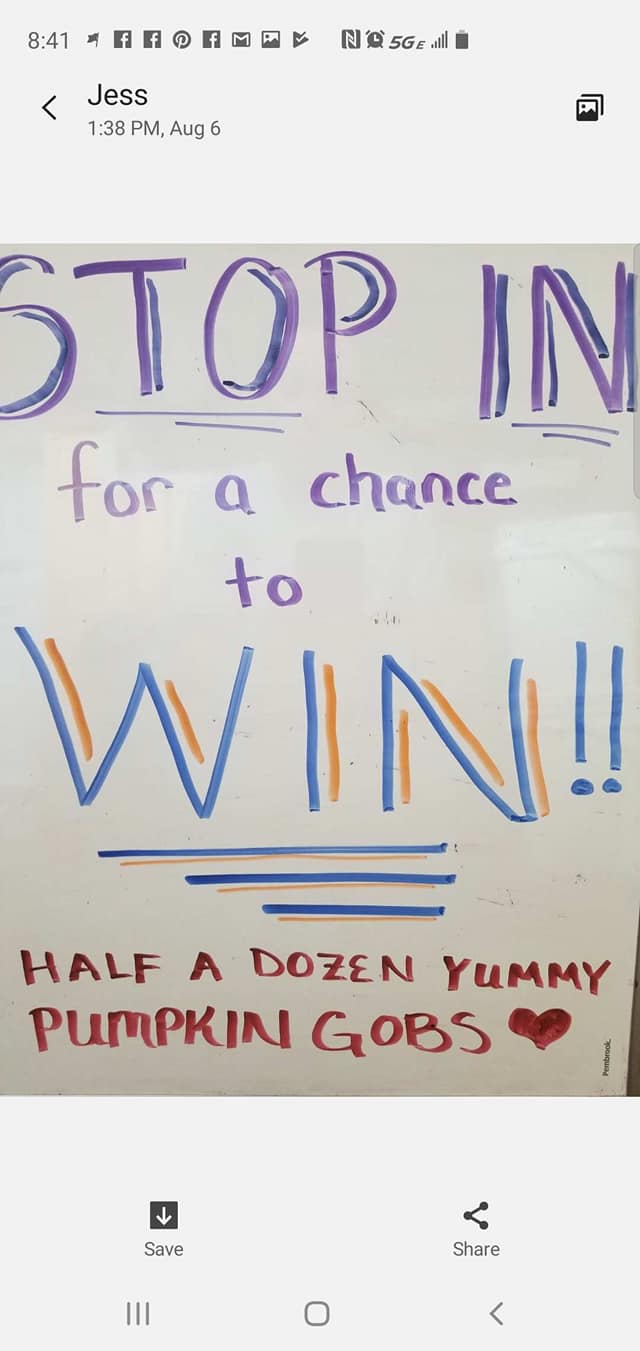 8:41
5GE
Jess
1:38 PM, Aug 6
STOP IN
for a chance
to
WIN!!
HALF A DOZEN YUMMY
PUMPKIN GOBS
Pembrook.
Save
Share